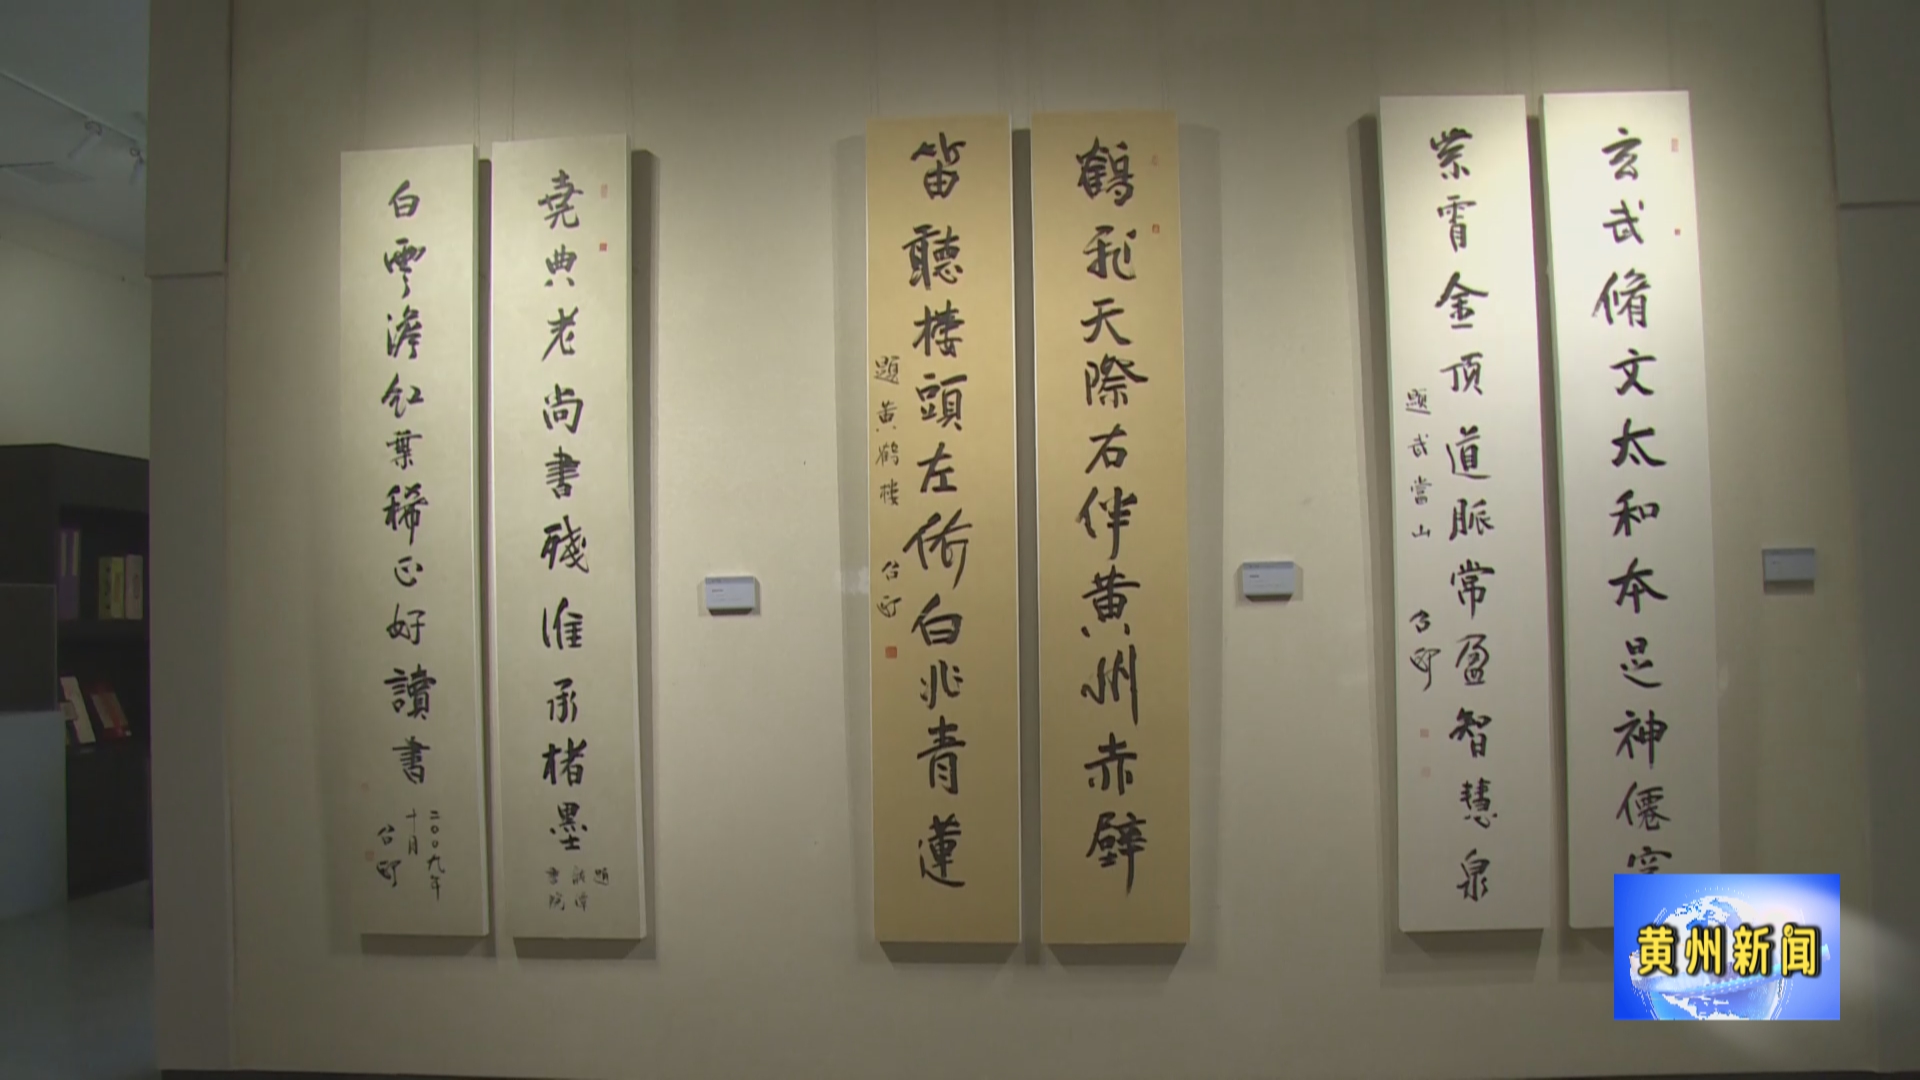 玄武脩文太和本是神僊
紫霄金頂道脈常盈智慧泉
題武當山
鶴飛天際右伴黄州赤壁
笛聽楼頭左倚白兆青蓮
題黄鶴楼
堯典老尚書殘誰承楮墨
題
書院
白雲澹紅葉稀正好讀書
二〇〇九年
十月
黄州新闻